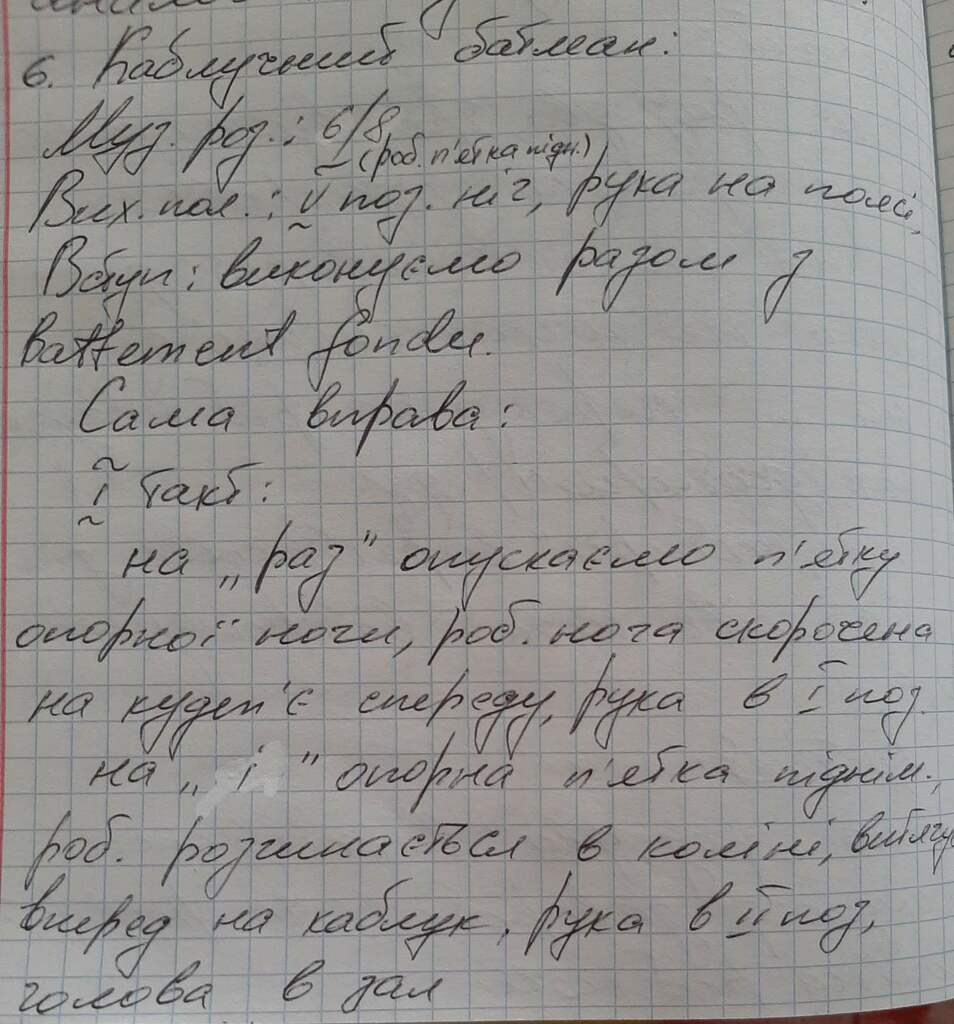 6. Каблучний батман:
Муз. роз.: 6/8
(роб. п'ятка підн.)
Вих. пол.: V поз. ніг, рука на поясі,
Вступ: виконуємо разом з
battement fondu.
Сама вправа:
І такт:
на „раз" опускаємо п'ятку
опорної ноги, роб. нога скорочена
на кудеп'є спереду, рука в І поз.
на „і" опорна п'ятка піднім.,
роб. розгинається в коліні,
вперед на каблук, рука в ІІ поз,
голова в зал